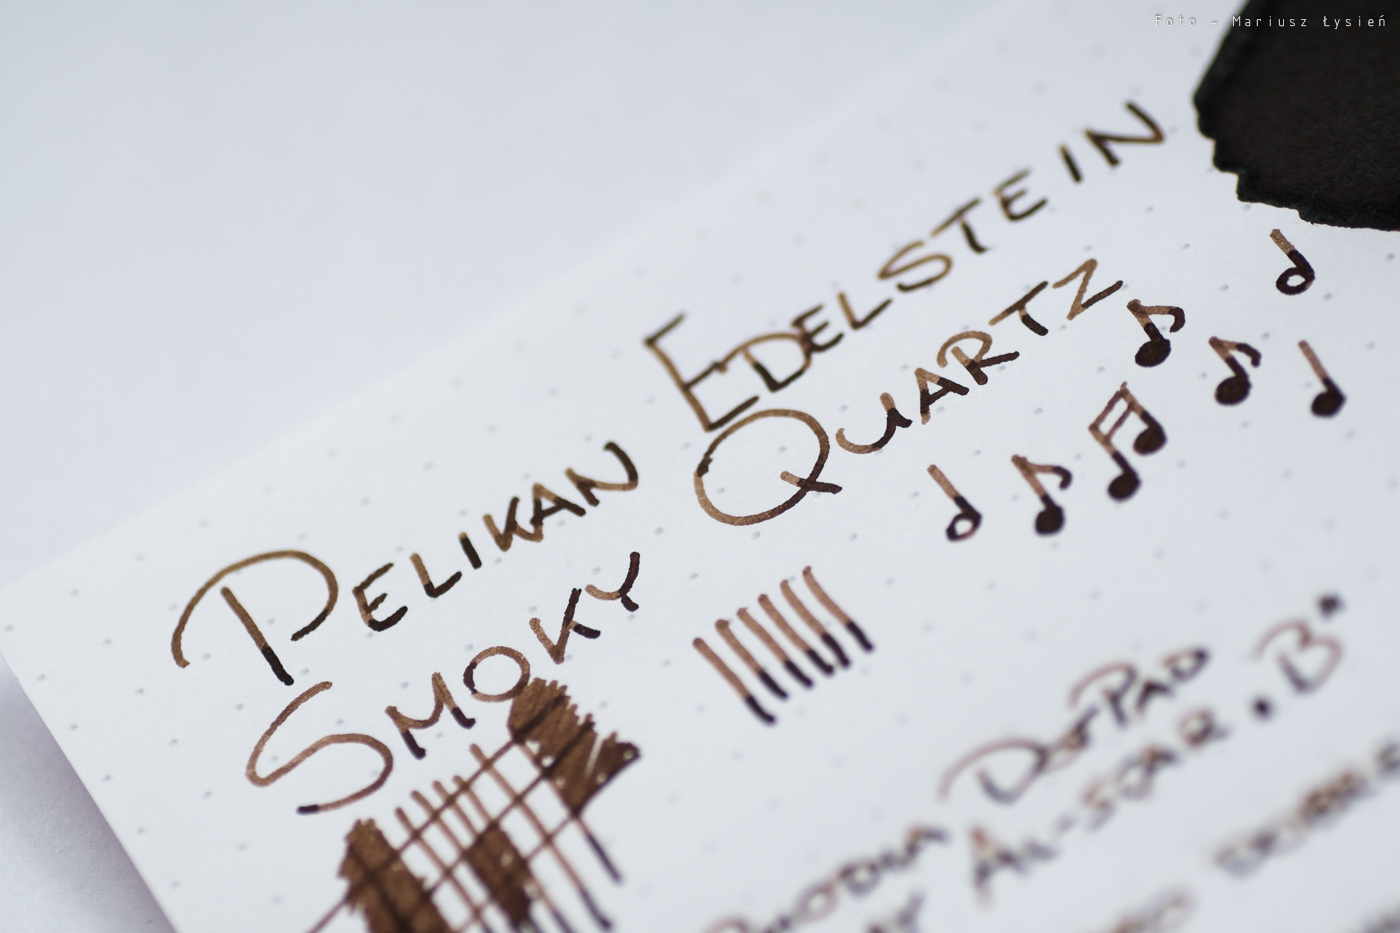 Foto - Mariusz Łysień
PELIKAN EDELSTEIN
SMOKY QUARTZ
DotPAD
AL-STAR "B"